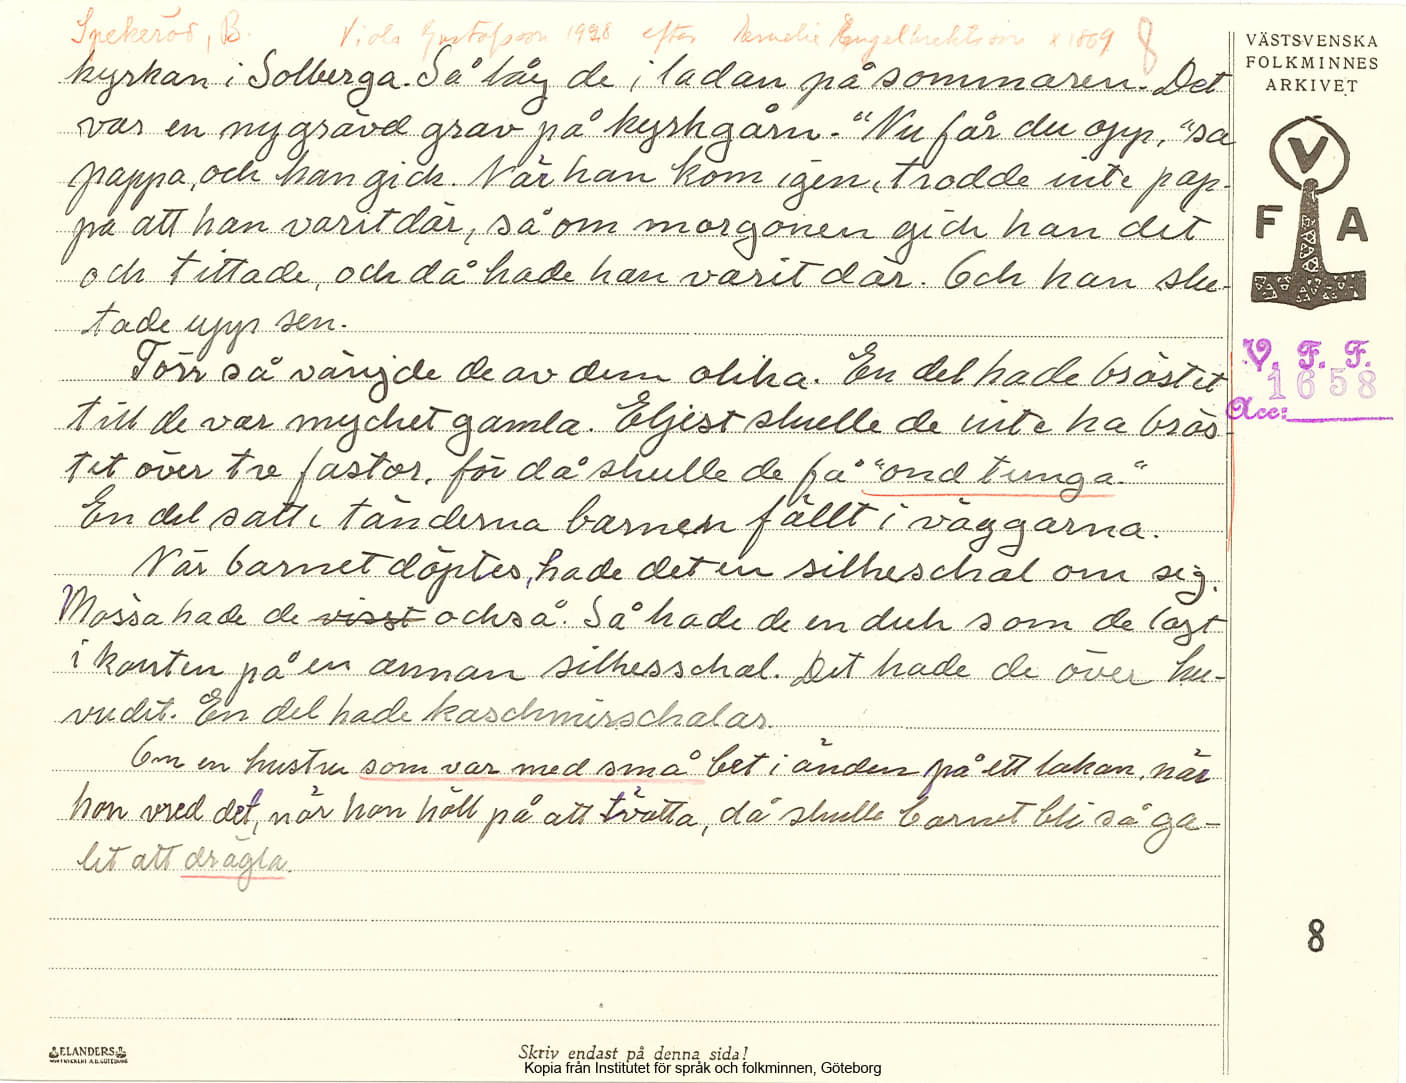 Spekeröd, B. Viola Gustafsson 1928 efter Amelie Engelbrektsson x 1869 8
kyrkan i Solberga. Så låg de i ladan på sommaren. Det
var en nygrävd grav på kyrkgårn. "Nu får du opp," sa
pappa, och han gick. När han kom igen, trodde inte pap-
pa att han varit där, så om morgonen gick han dit
och tittade, och då hade han varit där. Och han slu-
tade upp sen.
Förr så vänjde de av dem olika. En del hade bröstet
till de var mycket gamla. Eljest skulle de inte ha brös-
tet över tre fastor, för då skulle de få "ond tunga."
En del satte tänderna barnen fällt i väggarna.
När barnet döptes, hade det en silkeschal om sig.
Mössa hade de visst också. Så hade de en duk som de lagt
i kanten på en annan silkesschal. Det hade de över hu-
vudet. En del hade kaschmirschalar.
Om en hustru som var med små bet i änden på ett lakan, när
hon vred det, när hon höll på att tvätta, då skulle barnet bli så ga-
let att drägla.
VÄSTSVENSKA
FOLKMINNES
ARKIVET
V
F A
V. F. F.
1658
Acc:
8
ELANDERS
Skriv endast på denna sida!
Kopia från Institutet för språk och folkminnen, Göteborg